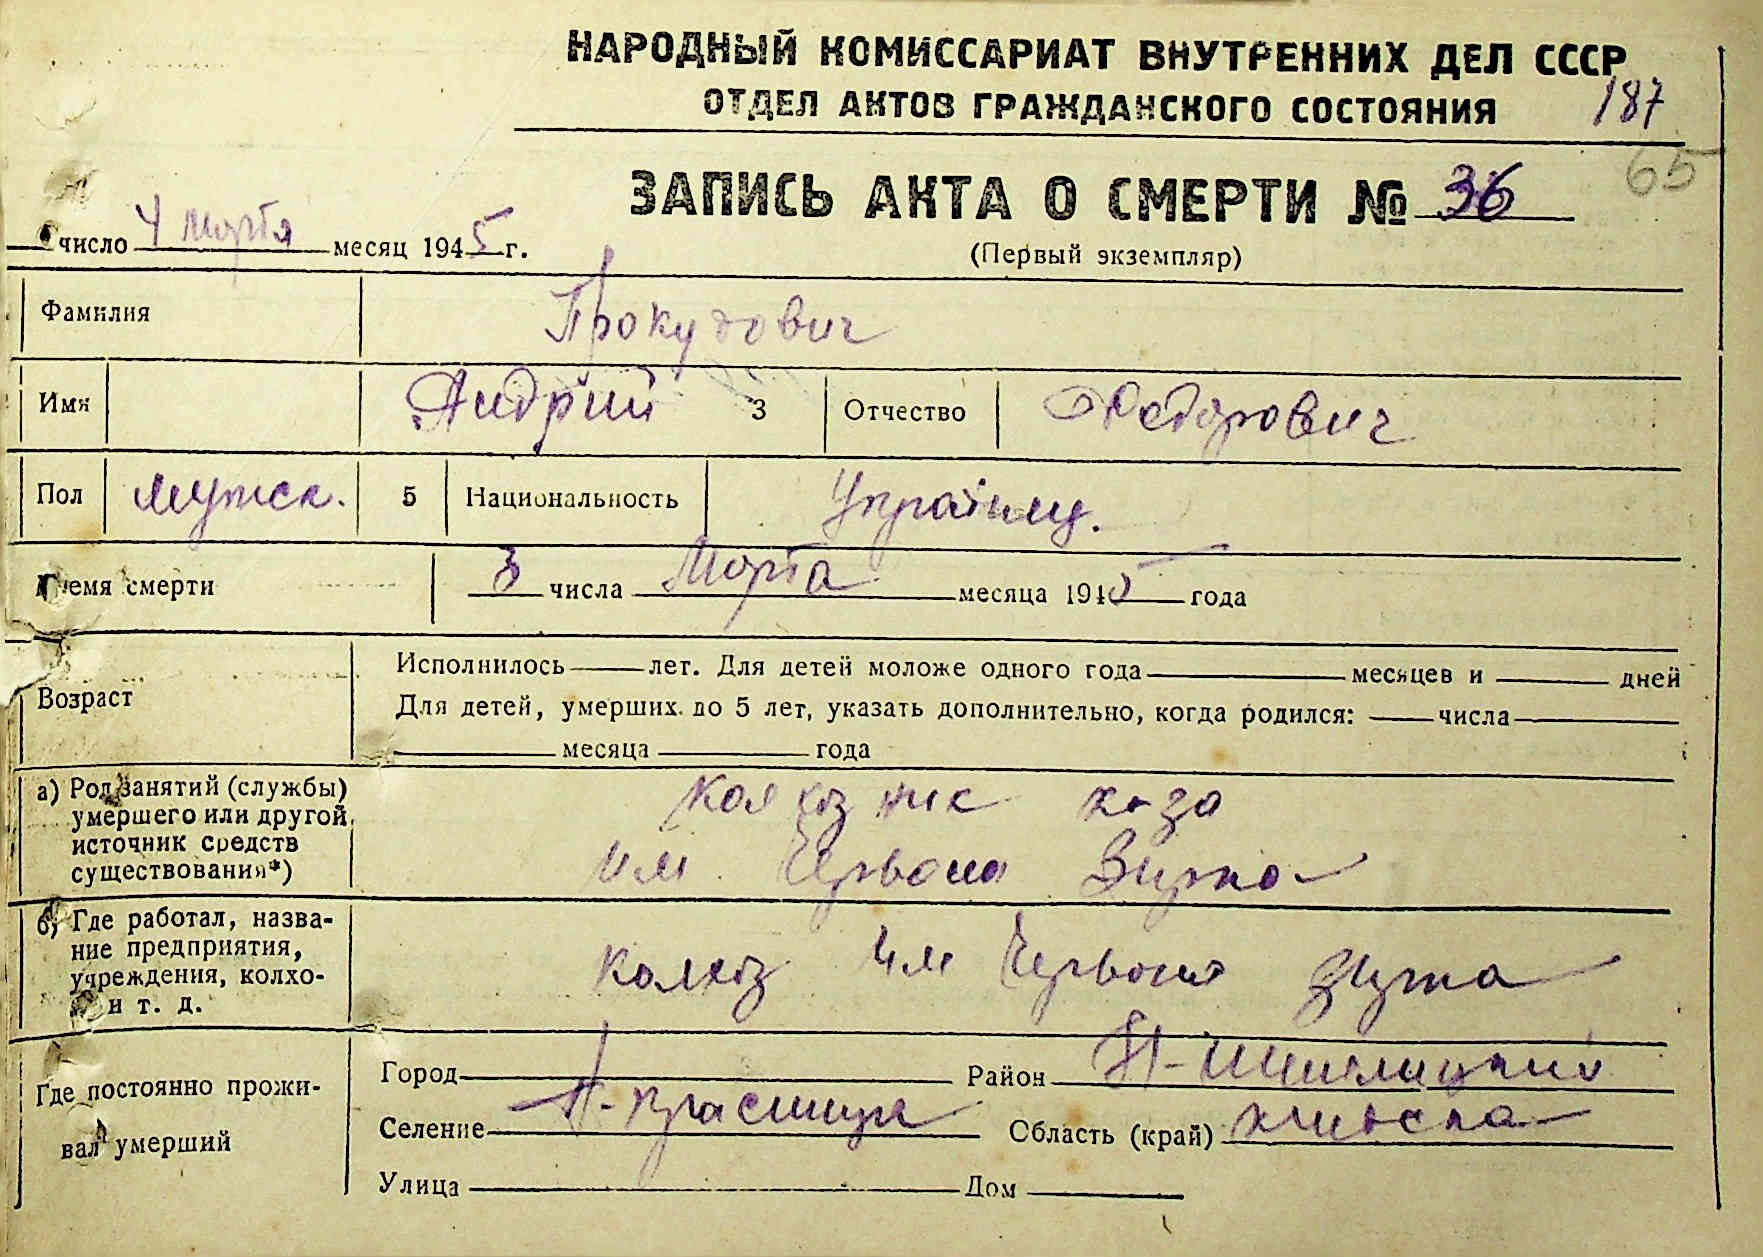 НАРОДНЫЙ КОМИССАРИАТ ВНУТРЕННИХ ДЕЛ СССР
ОТДЕЛ АКТОВ ГРАЖДАНСКОГО СОСТОЯНИЯ 187
65
ЗАПИСЬ АКТА О СМЕРТИ № 36
число 4 Марта месяц 1945 г.
(Первый экземпляр)
Фамилия Прокудович
Имя Андрий 3 Отчество Федорович
Пол мужск. 5 Национальность Украинц.
Время смерти 3 числа Марта месяца 1945 года
Возраст
Исполнилось лет. Для детей моложе одного года месяцев и дней
Для детей, умерших до 5 лет, указать дополнительно, когда родился: числа
месяца года
а) Род занятий (службы) умершего или другой источник средств существования*)
колхозник к-за
им Червона Зирка
б) Где работал, название предприятия, учреждения, колхо- и т. д.
колхоз им Червона Зирка
Где постоянно проживал умерший
Город Район
Селение Область (край) Киівска
Улица Дом